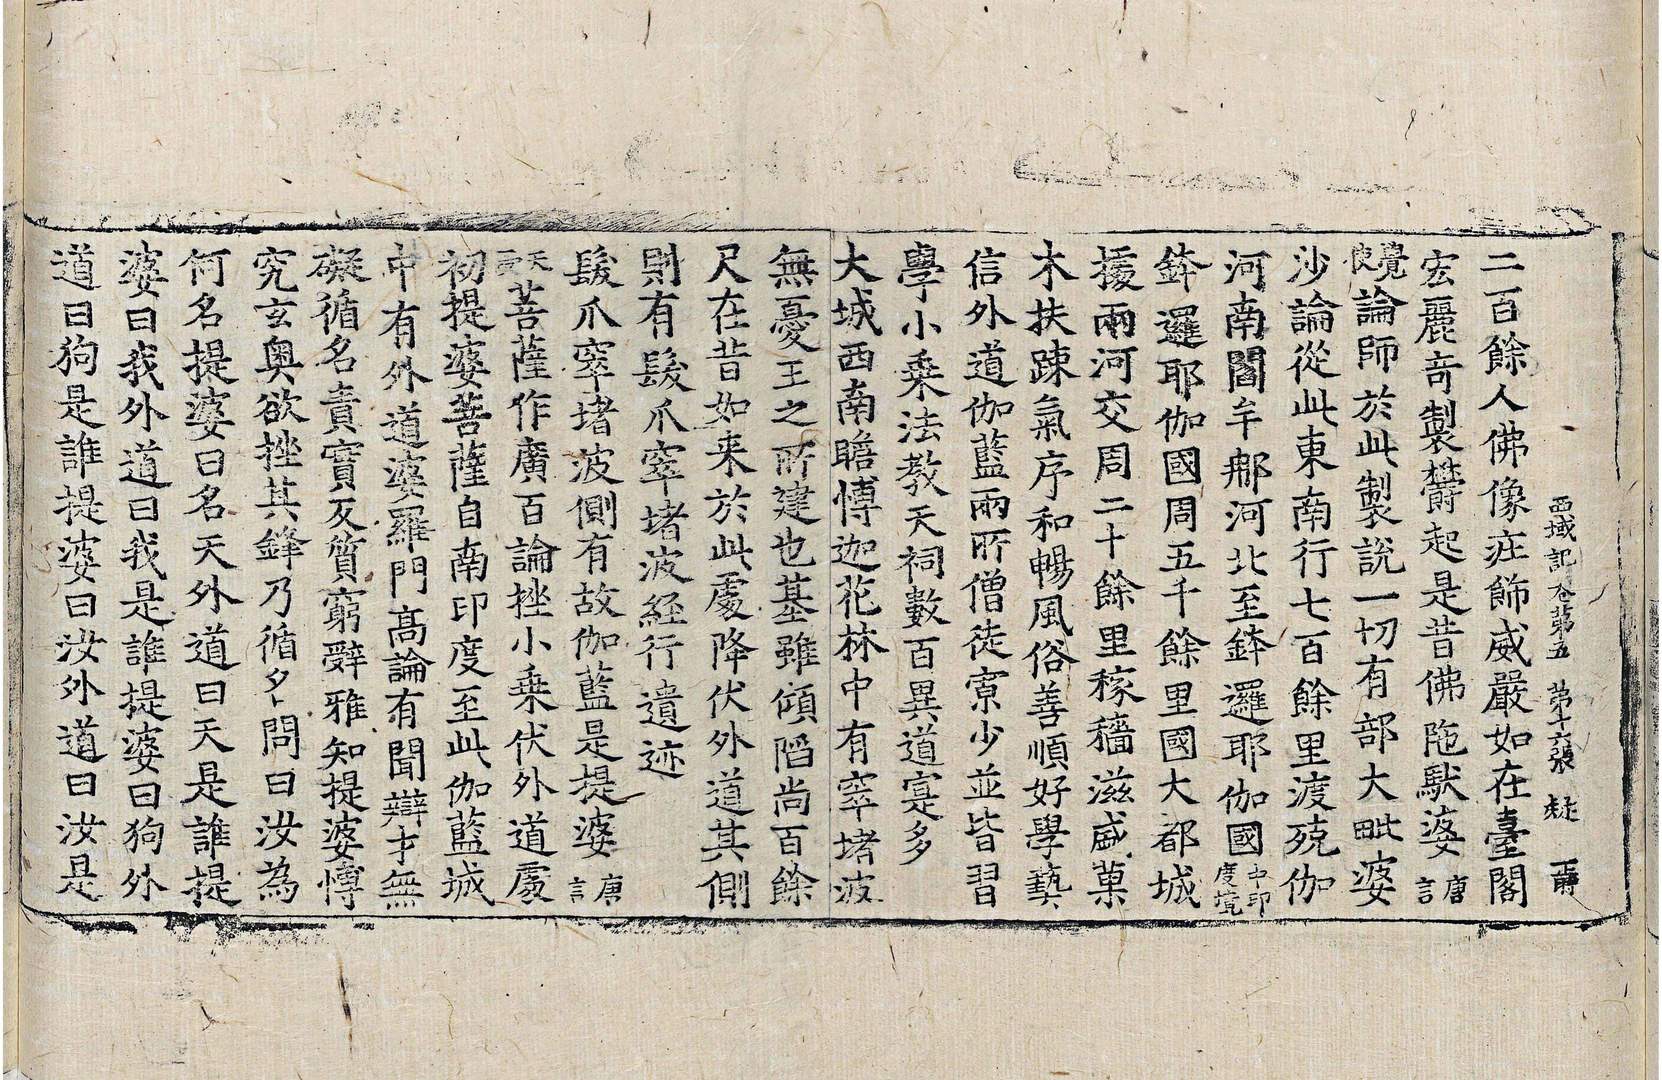 西域記卷第五 第十六張
二百餘人佛像莊飾威嚴如在臺閣
宏麗奇製欝起是昔佛陁馱婆唐言
覺使論師於此製說一切有部大毗婆
沙論從此東南行七百餘里渡殑伽
河南閻牟那河北至鉢邏耶伽國中印度境
鉢邏耶伽國周五千餘里國大都城
據兩河交周二十餘里稼穡滋盛菓
木扶踈氣序和暢風俗善順好學藝
信外道伽藍兩所僧徒寡少並皆習
學小乘法教天祠數百異道寔多
大城西南瞻博迦花林中有窣堵波
無憂王之所建也基雖傾陷尚百餘
尺在昔如来於此處降伏外道其側
則有髮爪窣堵波經行遺迹
髮爪窣堵波側有故伽藍是提婆唐言
天受菩薩作廣百論挫小乘伏外道處
初提婆菩薩自南印度至此伽藍城
中有外道婆羅門高論有聞辯才無
礙循名責實反質窮辭雅知提婆博
究玄奧欲挫其鋒乃循名問曰汝為
何名提婆曰名天外道曰天是誰提
婆曰我外道曰我是誰提婆曰狗外
道曰狗是誰提婆曰汝外道曰汝是